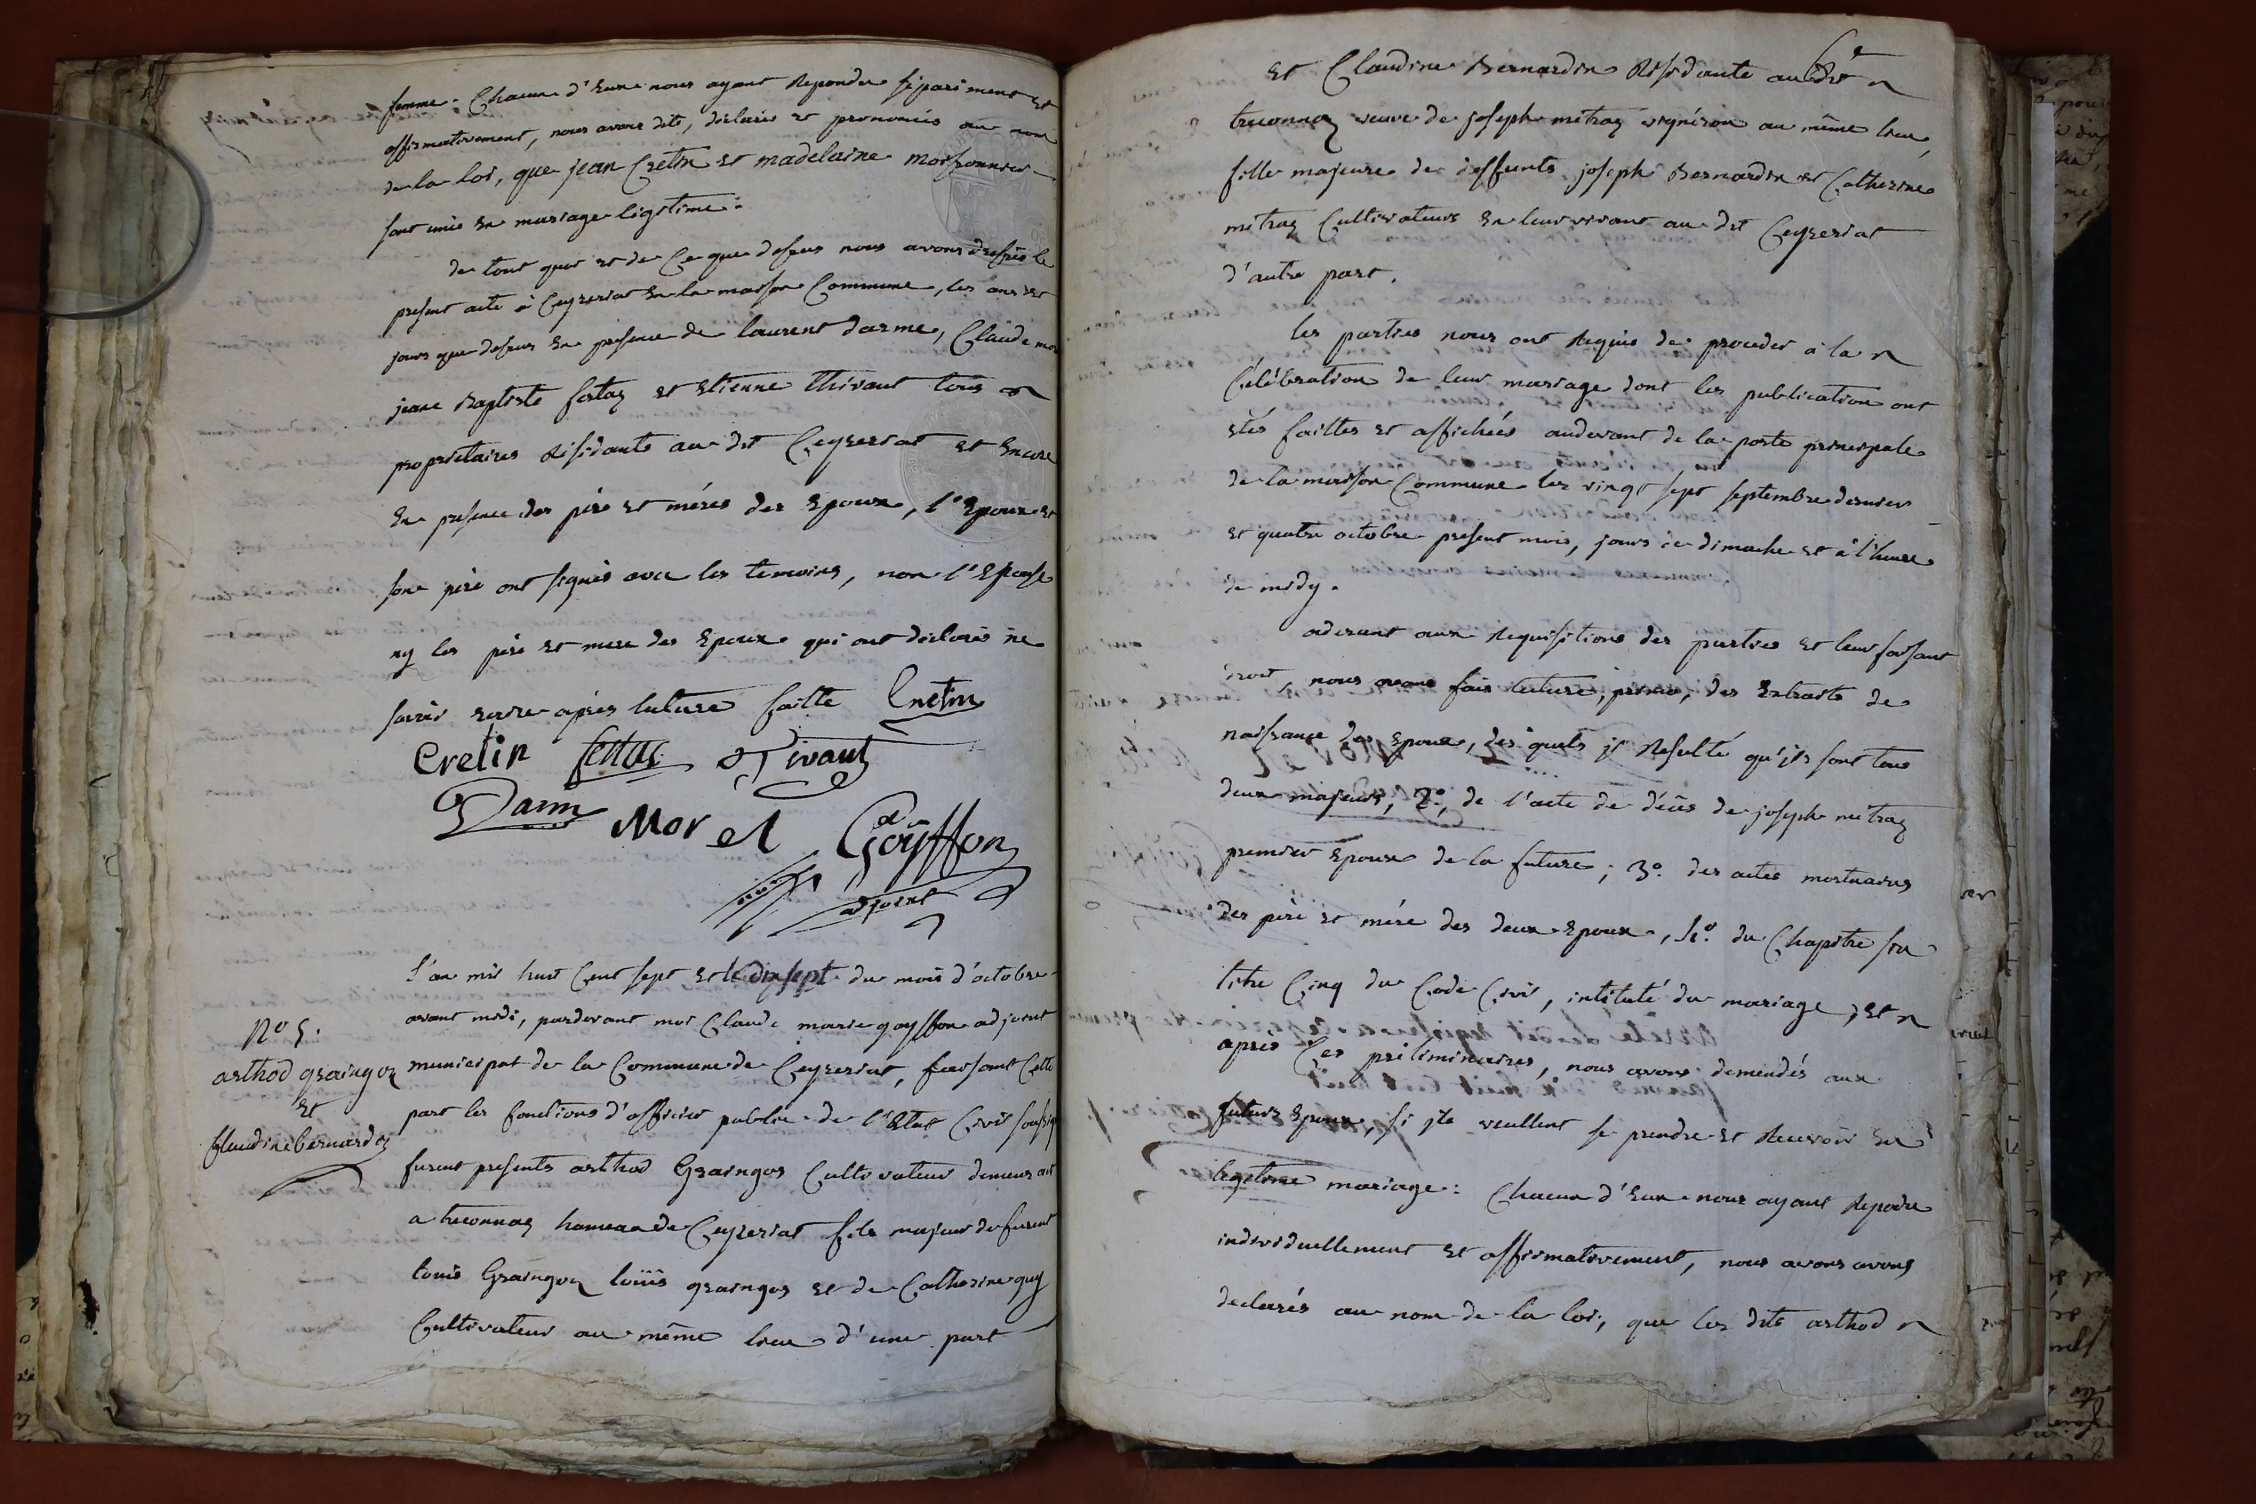 femme. Chacun d'Eux nous ayant Repondu séparément et
affirmativement, nous avons dits, déclarés et prononcés au nom
de la loi, que jean Cretin et madelaine moissonnier
sont unis en mariage légitime.
de tout quoi et de Ce que dessus nous avons dressés le
présent acte à Ceyzeriat en la maison Commune, les an et
jours que dessus en présence de laurent darme, Claude
jean Baptiste et Etienne thivant tous
propriétaires Résidants au dit Ceyzeriat et Encore
En présence des péré et méres des Epoux, l'Epoux et
son péré ont signés avec les temoins, non l'Epouse
ny les péré et mere des Epoux qui ont déclarés ne
savoir après lecture faitte Cretin
Cretin
Morel Goyffon
adjoint
L'an mil huit Cent sept et le dix sept du mois d'octobre
avant midi, pardevant moi Claude marie goyffon adjoint
N° 5.
arthod graingoz municipal de la Commune de Ceyzeriat, faisant Cette
et
part les fonctions d'officier public de l'Etat Civil
Claudine Bernardin
furent présents arthod Graingos Cultivateur demeurant
a treconnaz hameau de Ceyzeriat fils majeur de furent
louis Graingoz louis graingos et de Catherine guy
Cultivateur au même lieu d'une part
et Claudine Bernardin Résidante au dit
treconnaz veuve de joseph mitraz vignéron au même lieu,
fille majeure de deffunts joseph Bernardin et Catherine
mitraz Cultivateurs En leur vivant au dit Ceyzeriat
d'autre part.
les parties nous ont Requis de proceder à la
Célébration de leur mariage dont les publication ont
étés faittes et affichées audevant de la porte principale
de la maison Commune les vingt sept septembre dernier
et quatre octobre présent mois, jours de dimache et à l'heure
de midy.
aderant aux Requisitions des parties et leur faisant
droit, nous avons fait lecture, primo, des Extraits de
naissance des Epoux, des quels jl Resulté qu'jls sont tous
deux majeurs, 2°, de l'acte de décés de joseph mitraz
premier Epoux de la future; 3°. des actes mortuaires
des péré et mére des deux Epoux, 4°. du Chapitre six
titre Cinq du Code Civil, intitulé du mariage, et
apres Ces préliminaires, nous avons demendés aux
futurs Epoux, si jls veullent se prendre et Recevoir En
legitime mariage: Chacun d'Eux nous ayant Repondu
individuellement et affirmativement, nous avons avons
declarés au nom de la loi, que les dits arthod